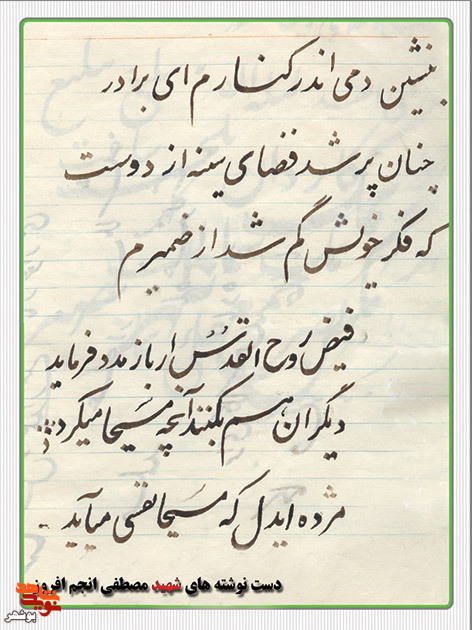 بنشین دمی اندر کنارم ای برادر
چنان پر شد فضای سینه از دوست
که فکر خویش گم شد از ضمیرم
فیض روح القدس ار باز مدد فرماید
دیگران هم بکنند آنچه مسیحا میکرد
مژده ایدل که مسیحا نفسی میآید
دست نوشته های شهید مصطفی انجم افروز
نوید شاهد
بوشهر